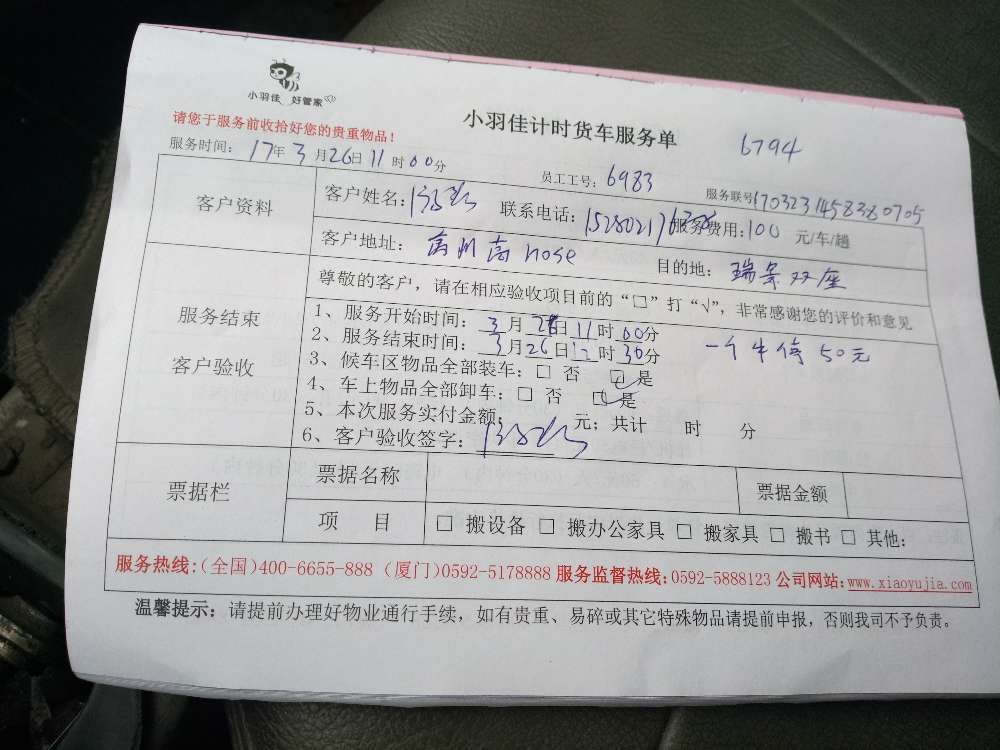 小羽佳 好管家
小羽佳计时货车服务单 6794
请您于服务前收拾好您的贵重物品！
服务时间：17年3月26日11时00分 员工工号：6983 服务联号1703231458380705
客户资料 客户姓名： 联系电话：15280217 服务费用：100 元/车/趟
客户地址： nose 目的地：瑞景双座
服务结束 客户验收
尊敬的客户，请在相应验收项目前的“□”打“√”，非常感谢您的评价和意见
1、服务开始时间：3月26日11时00分
2、服务结束时间：3月26日12时30分 50元
3、候车区物品全部装车：□ 否 ☑ 是
4、车上物品全部卸车：□ 否 ☑ 是
5、本次服务实付金额： 元；共计 时 分
6、客户验收签字：
票据栏 票据名称 票据金额
项 目 □ 搬设备 □ 搬办公家具 □ 搬家具 □ 搬书 □ 其他：
服务热线：（全国）400-6655-888（厦门）0592-5178888 服务监督热线：0592-5888123 公司网站：www.xiaoyujia.com
温馨提示：请提前办理好物业通行手续，如有贵重、易碎或其它特殊物品请提前申报，否则我司不予负责。